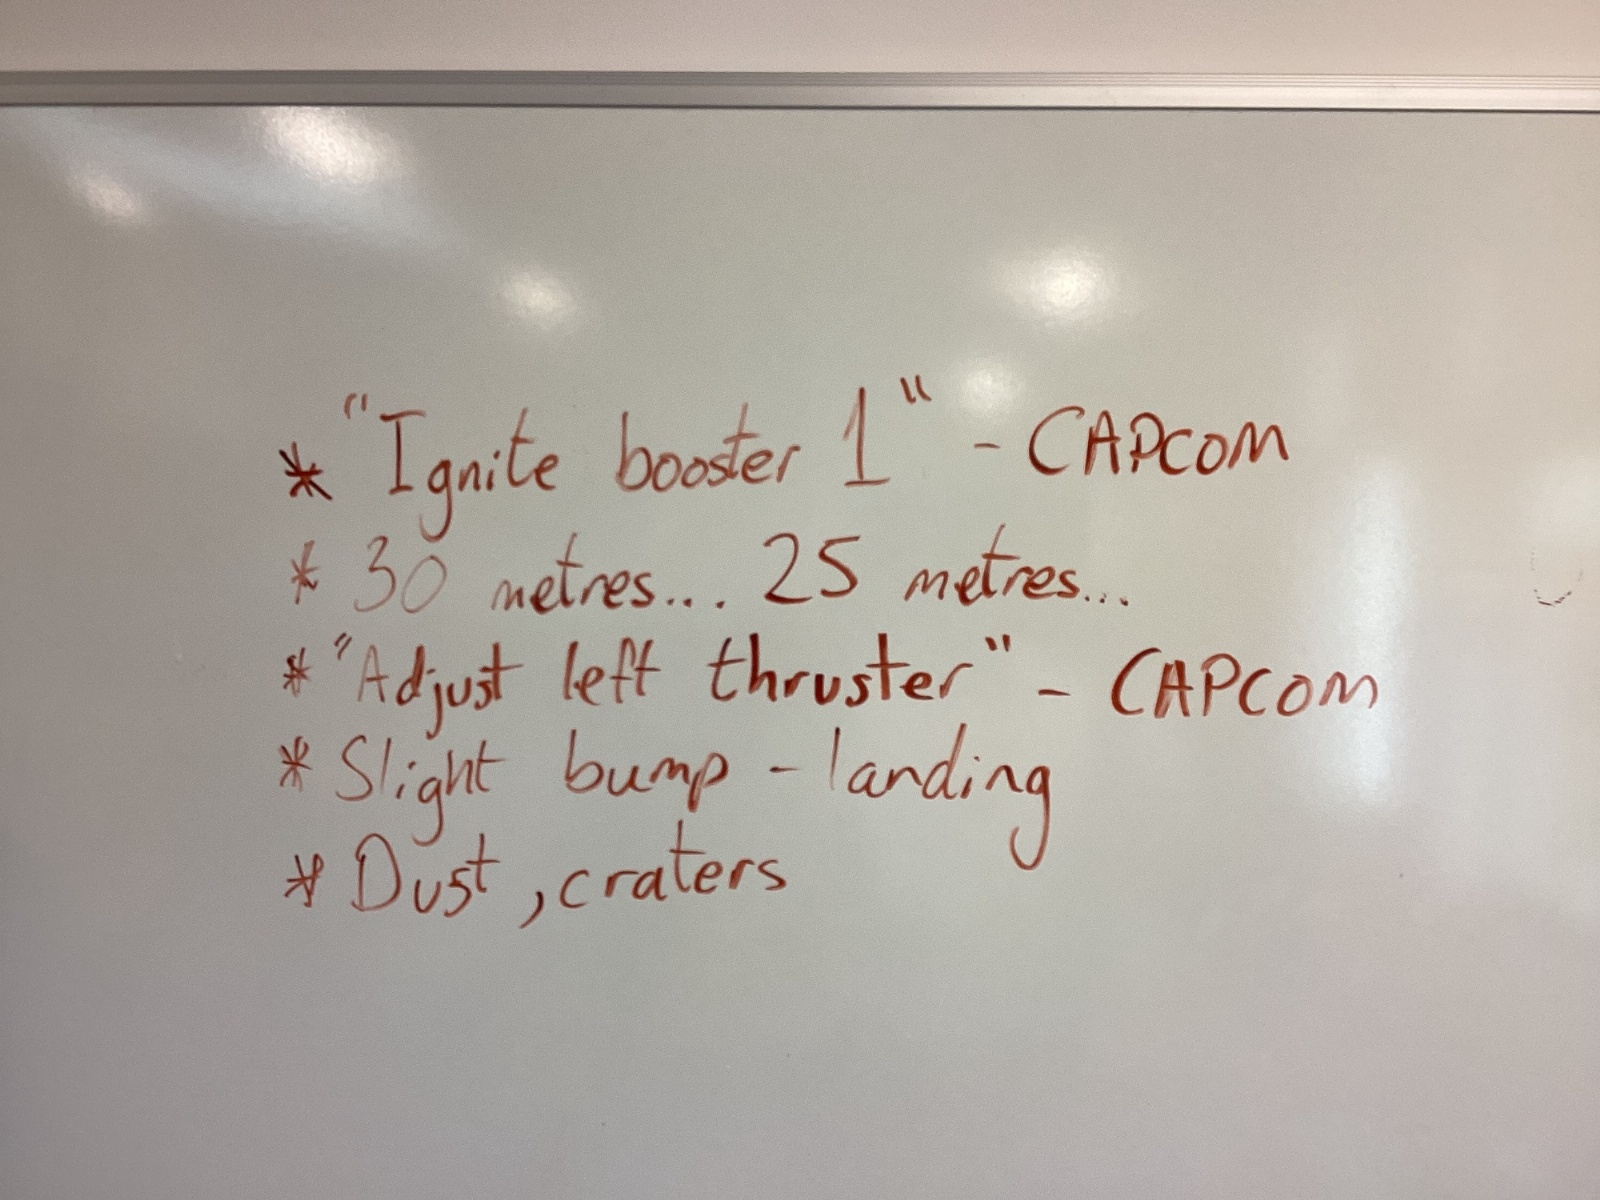 * "Ignite booster 1" - CAPCOM
* 30 metres... 25 metres...
* "Adjust left thruster" - CAPCOM
* Slight bump - landing
* Dust, craters